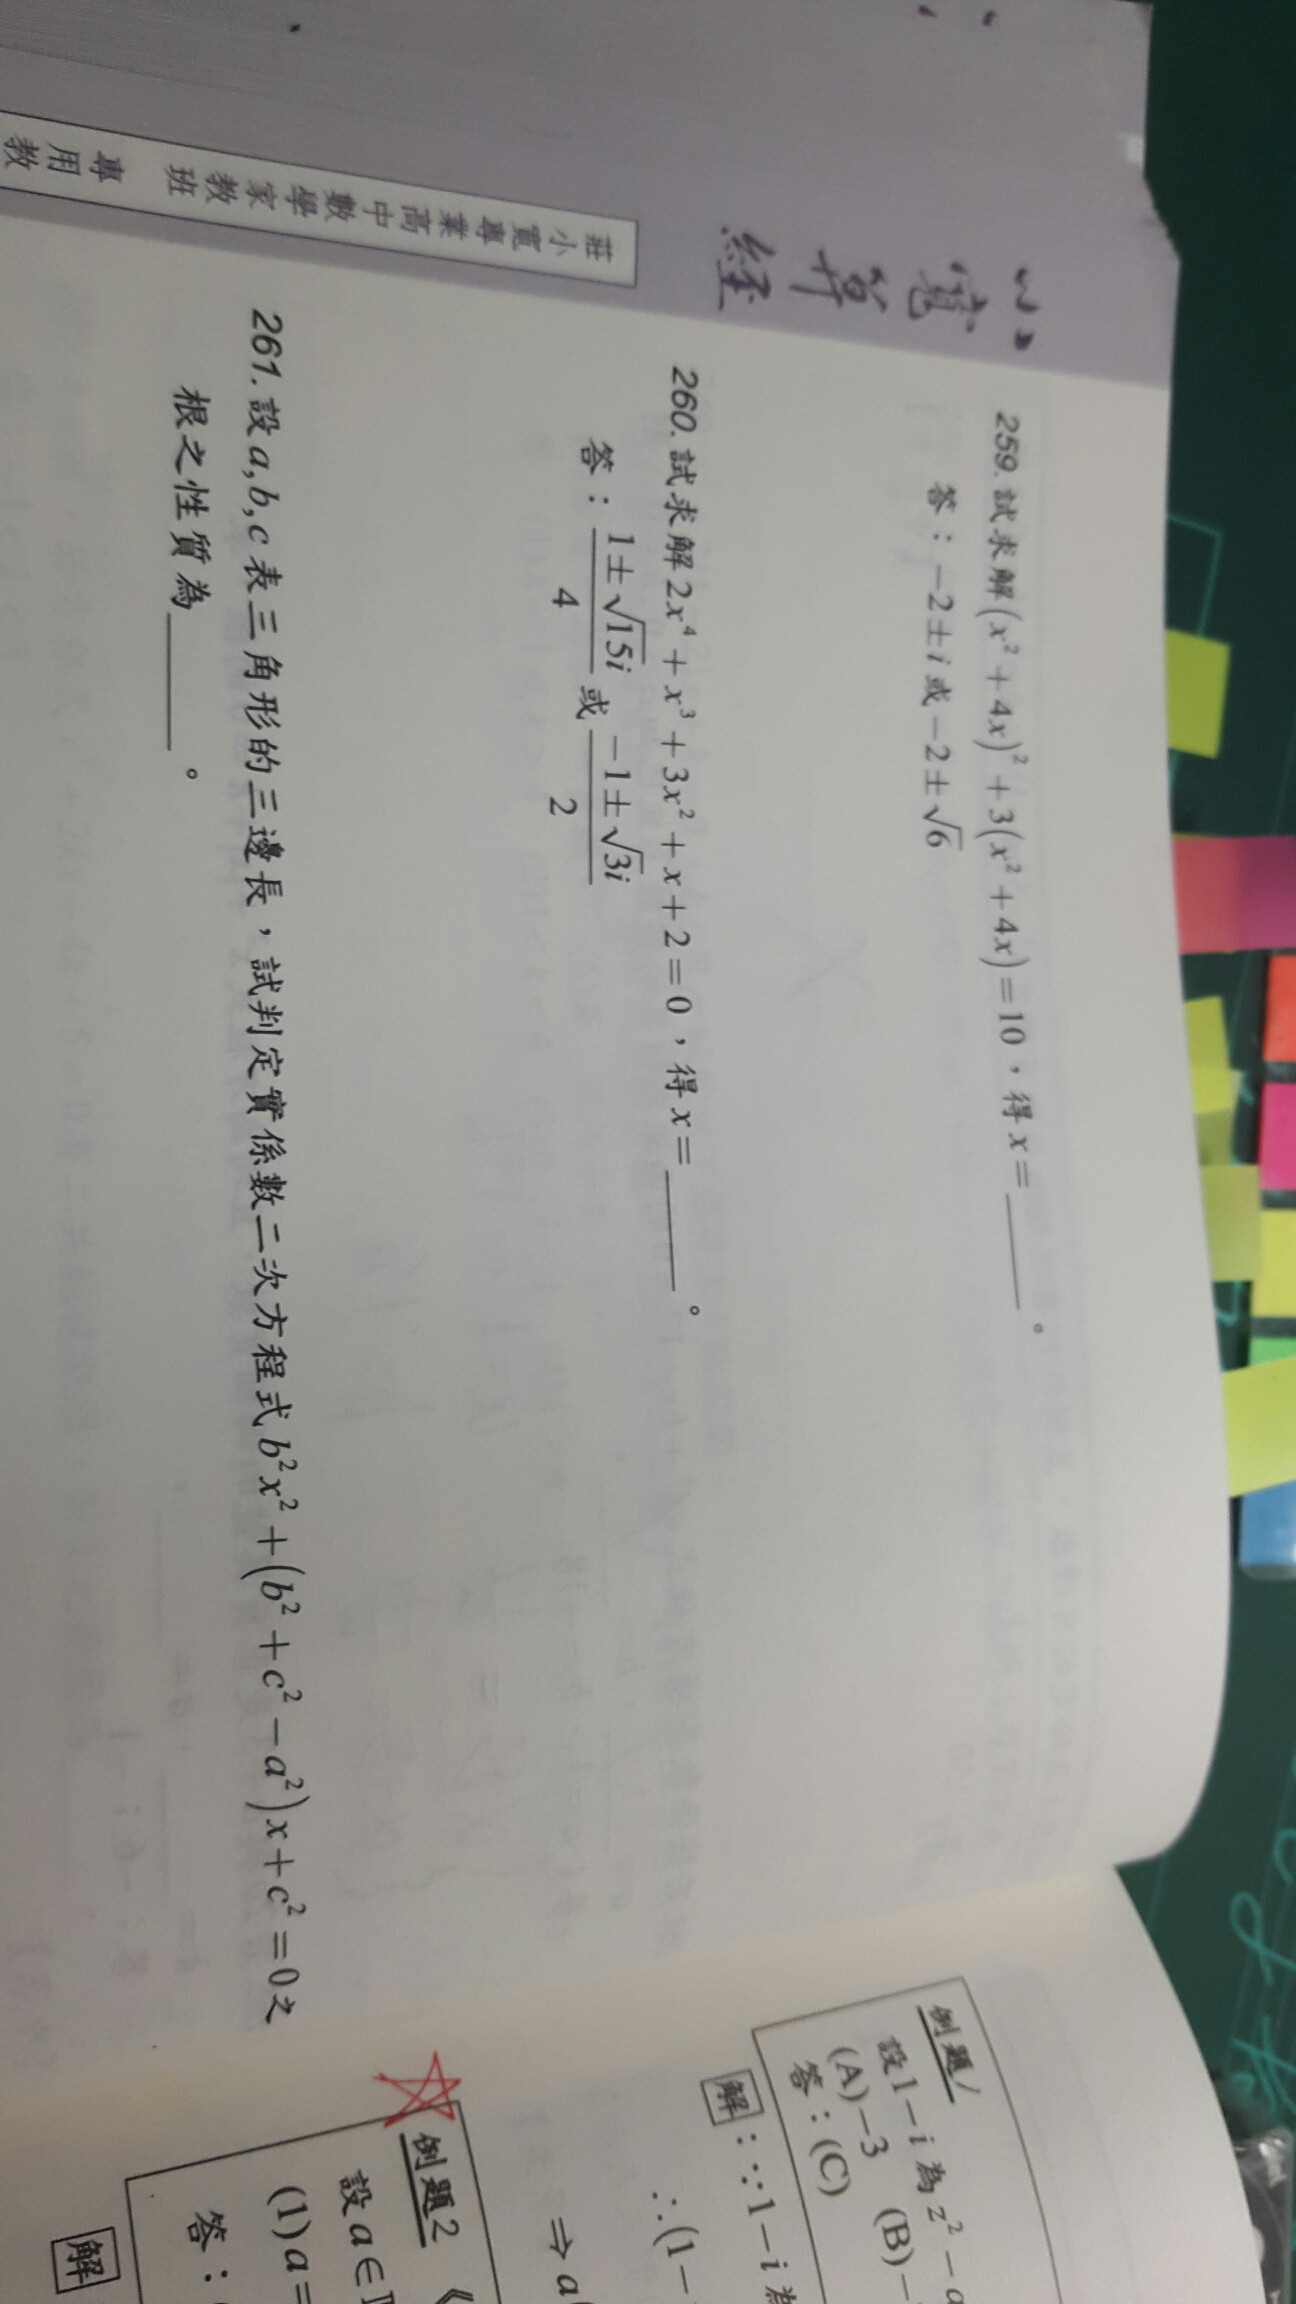 小寬算經
莊小寬專業高中數學家教班 專用教
259. 試求解(x²+4x)²+3(x²+4x)=10，得x=______。
答：-2±i或-2±√6
260. 試求解2x⁴+x³+3x²+x+2=0，得x=______。
答：(1±√15i)/4 或 (-1±√3i)/2
261. 設a,b,c表三角形的三邊長，試判定實係數二次方程式b²x²+(b²+c²-a²)x+c²=0之
根之性質為______。
例題1
設1-i為z²-a
(A)-3 (B)-
答：(C)
解：∵1-i為
∴(1-
⇒a
例題2 《
設a∈
(1)a=
答：
解